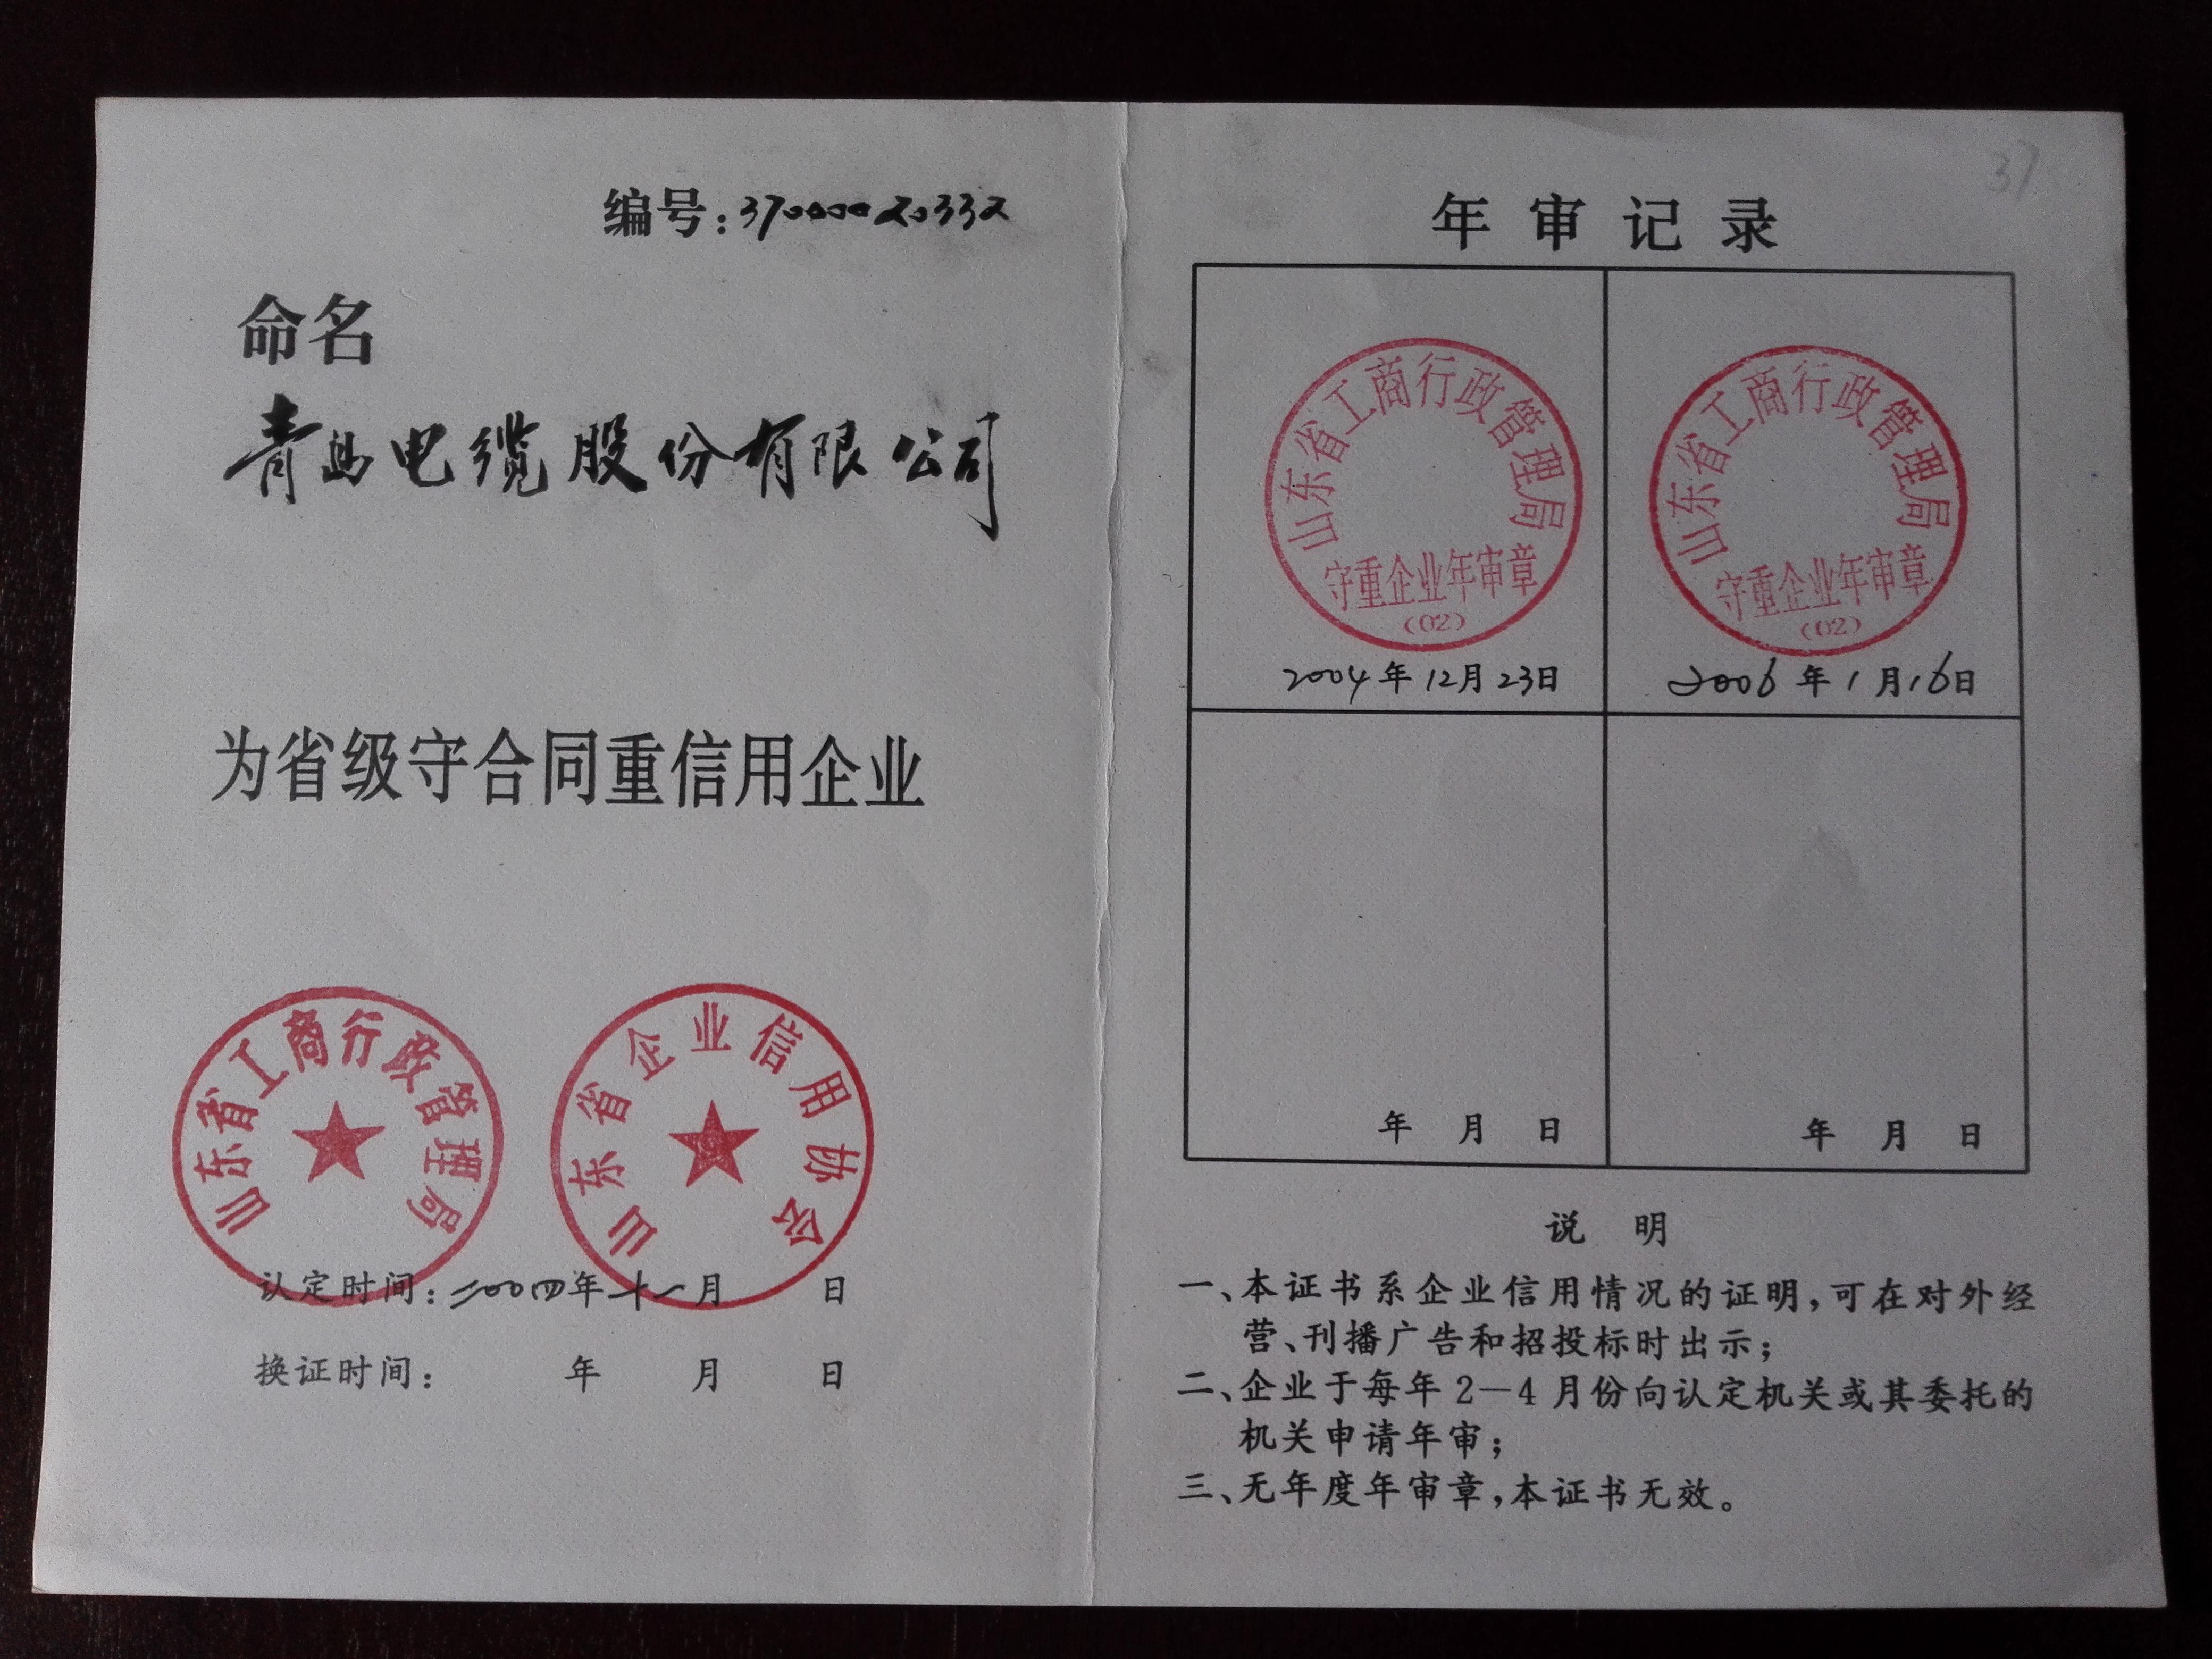 编号:37000020332
命名
青岛电缆股份有限公司
为省级守合同重信用企业
山东省工商行政管理局
山东省企业信用协会
认定时间:二00四年十一月 日
换证时间: 年 月 日
37
年审记录
山东省工商行政管理局
守重企业年审章
(02)
2004年12月23日
山东省工商行政管理局
守重企业年审章
(02)
2006年1月16日
年 月 日
年 月 日
说 明
一、本证书系企业信用情况的证明,可在对外经
营、刊播广告和招投标时出示;
二、企业于每年2—4月份向认定机关或其委托的
机关申请年审;
三、无年度年审章,本证书无效。